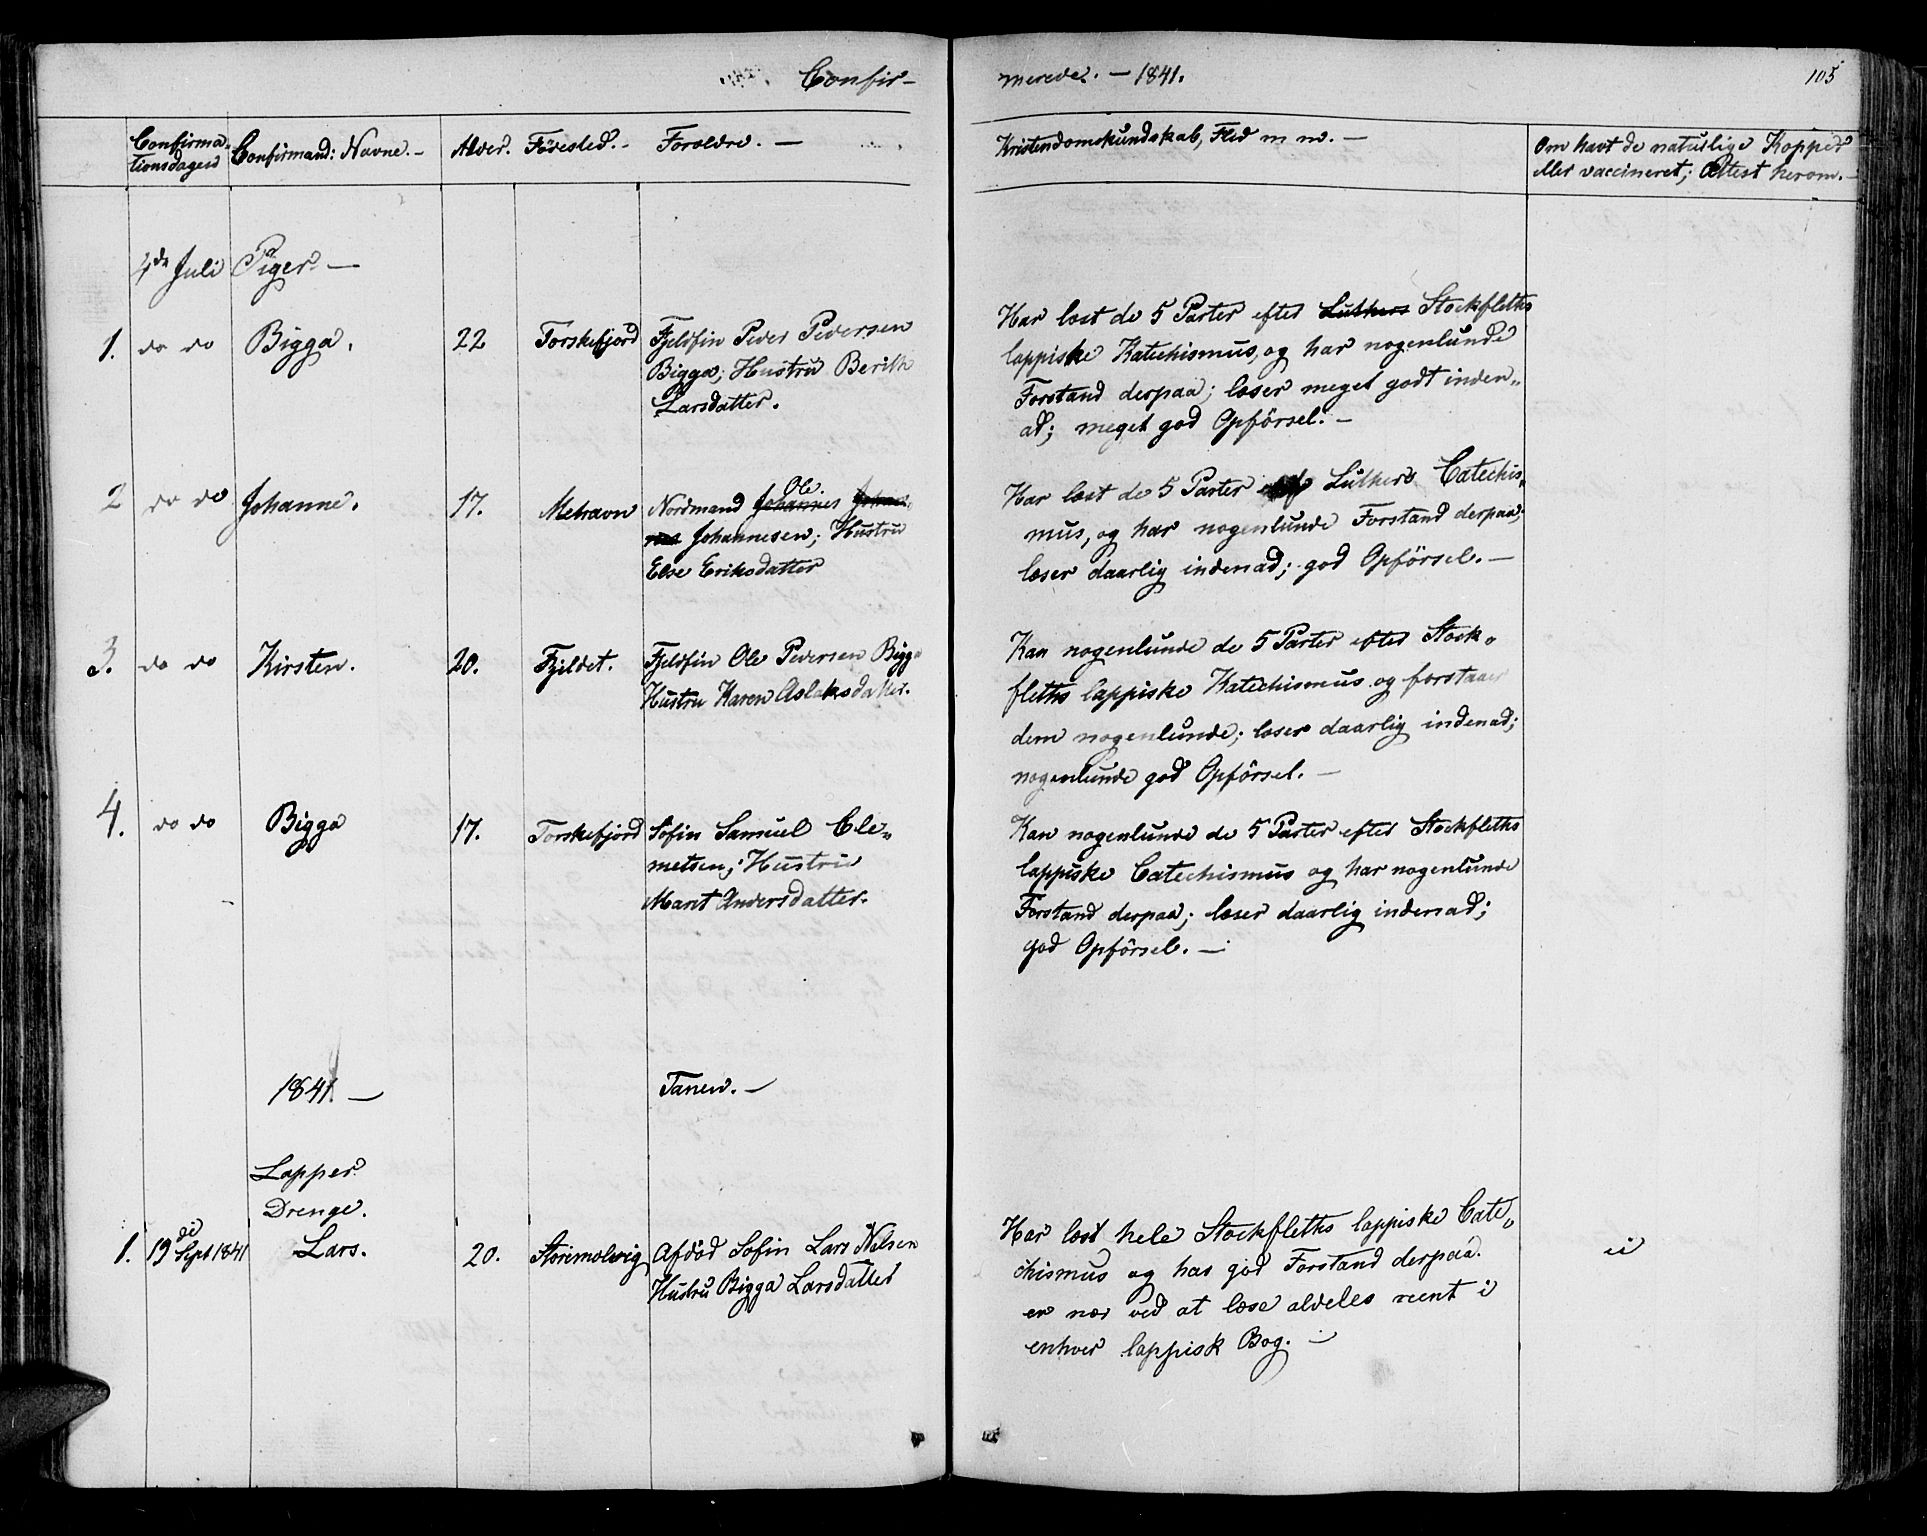 Confir-
merede. - 1841.
105
Confirma-
tionsdagen
Confirmand: Navne. -
Alder.
Fødested. -
Forældre. -
Kristendomskundskab, Flid m m. -
Om havt de naturlige Kopper
eller vaccineret; Attest herom. -
4de Juli Piger. -
1. do do Bigga. 22 Torskefjord Fjeldfin Peder Pedersen
Bigga; Hustru Berith
Larsdatter.
Har læst de 5 Parter efter Luthers Stockfleths
lappiske Katechismus, og har nogenlunde
Forstand derpaa; læser meget godt inden„
ad; meget god Opförsel. -
2 do do Johanne. 17. Mehavn Nordmand Johannes Ole
Johannesen; Hustru
Else Eriksdatter
Har læst de 5 Parter Luthers Catechis„
mus, og har nogenlunde Forstand derpaa;
læser daarlig indenad; god Opförsel. -
3. do do Kirsten. 20. Fjeldet. Fjeldfin Ole Pedersen Bigga
Hustru Karen Aslaksdatter.
Kan nogenlunde de 5 Parter efter Stock„
fleths lappiske Katechismus og forstaaer
dem nogenlunde; læser daarlig indenad;
nogenlunde god Opförsel. -
4. do do Bigga 17. Torskefjord Söfin Samuel Cle„
metsen; Hustru
Marit Andersdatter.
Kan nogenlunde de 5 Parter efter Stockfleths
lappiske Catechismus og har nogenlunde
Forstand derpaa; læser daarlig indenad;
god Opförsel. -
1841 - Tanen. -
Lapper
Drenge.
1. 19de Sept 1841 Lars. 20. Storemolvig Afdöd Söfin Lars Nilsen
Hustru Bigga Larsdatter
Har læst hele Stockfleths lappiske Cate„
chismus og har god Forstand derpaa.
er nær ved at læse aldeles reent i
enhver lappisk Bog. -